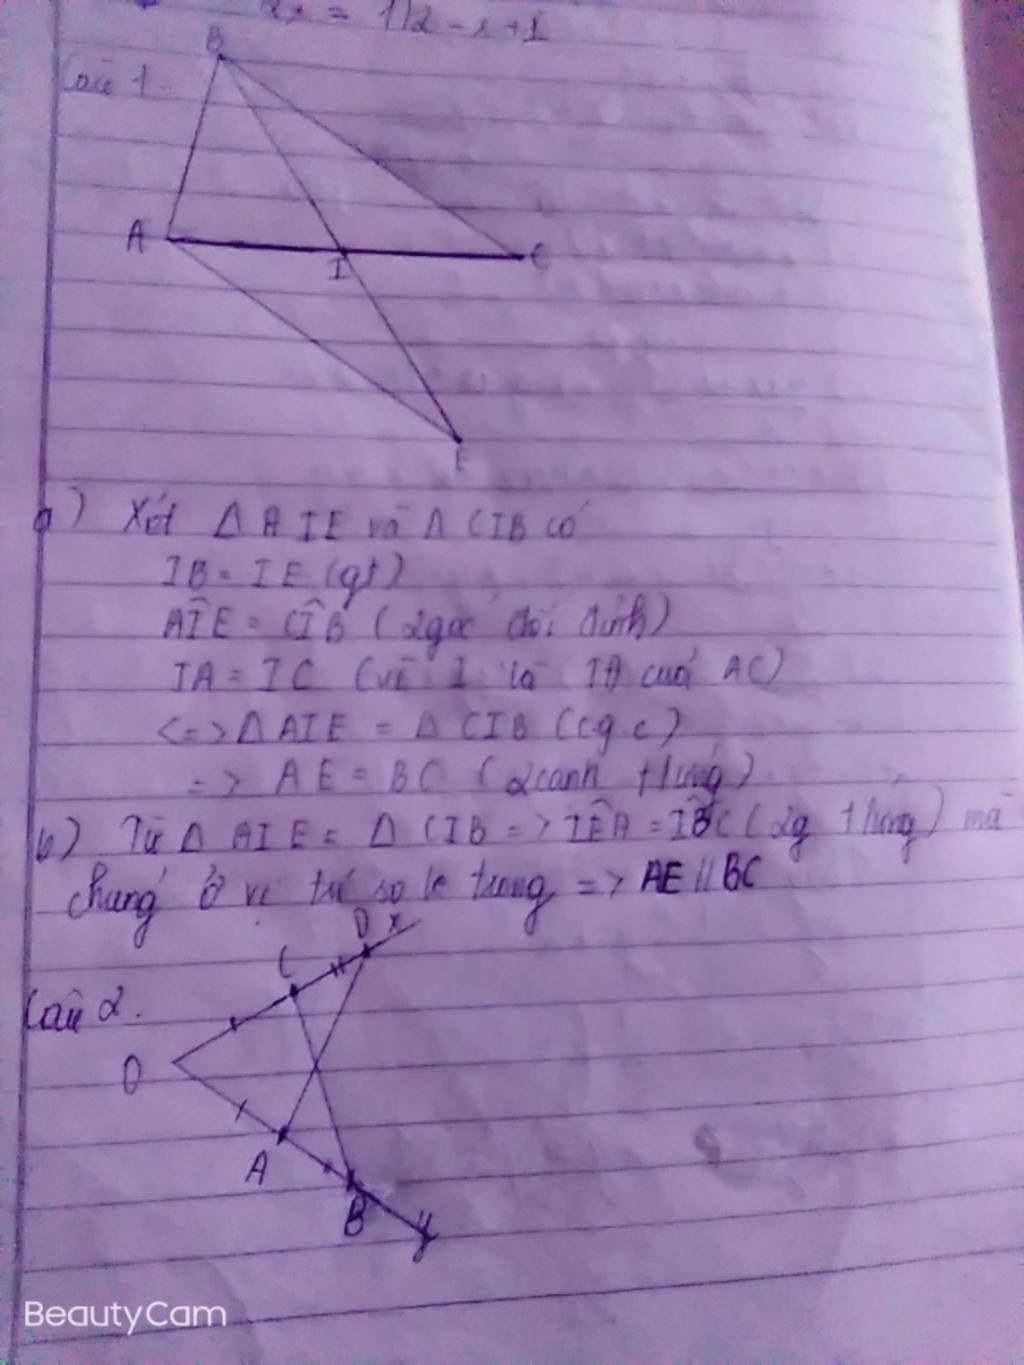 2x = 1)2 - x + 1
B
Câu 1.
A
I
C
E
a) Xét Δ AIE và Δ CIB có
IB = IE (gt)
AÎE = CÎB (2góc đối đỉnh)
IA = IC (vì I là TĐ của AC)
<=> Δ AIE = Δ CIB (c.g.c)
=> AE = BC (2cạnh tứng)
b) Từ Δ AIE = Δ CIB => IÊA = IB̂C (2g tứng) mà
chúng ở vị trí so le trong => AE // BC
D x
C
Câu 2.
O
A
B
y
BeautyCam